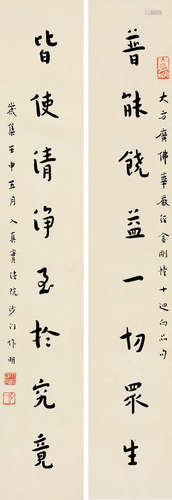 大方廣佛華嚴經金剛幢十迴向品句
普能饒益一切眾生
皆使清淨至於究竟
歲集壬申五月入真實法院沙門作明